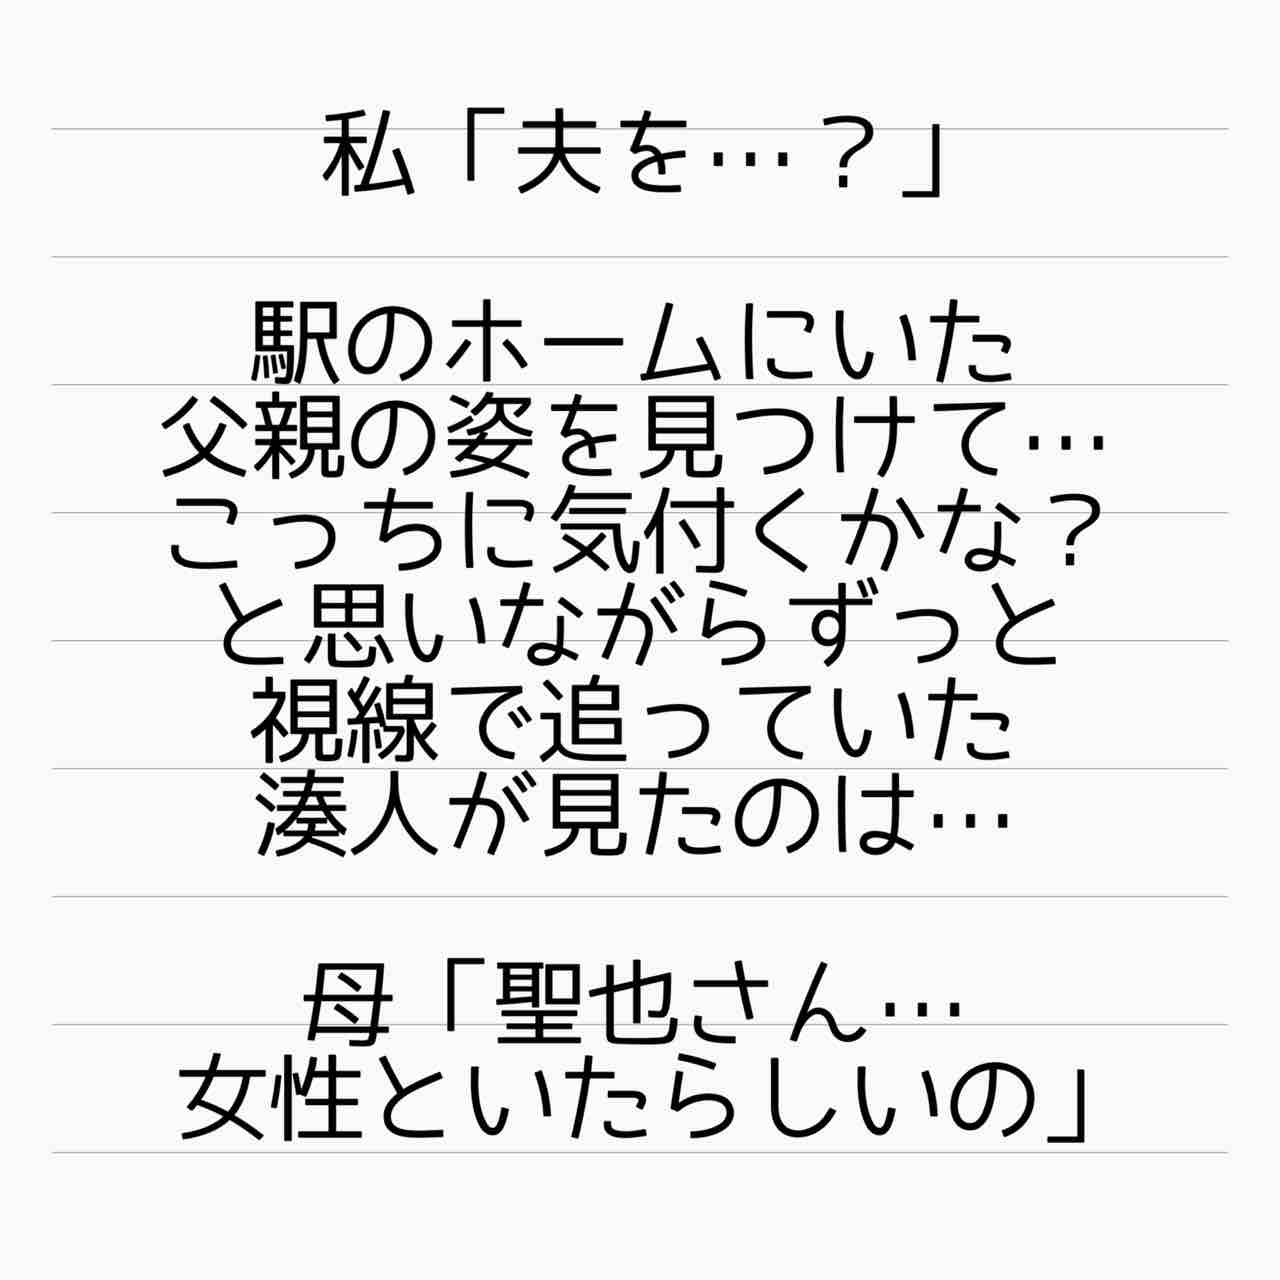 私「夫を…？」
駅のホームにいた
父親の姿を見つけて…
こっちに気付くかな？
と思いながらずっと
視線で追っていた
湊人が見たのは…
母「聖也さん…
女性といたらしいの」